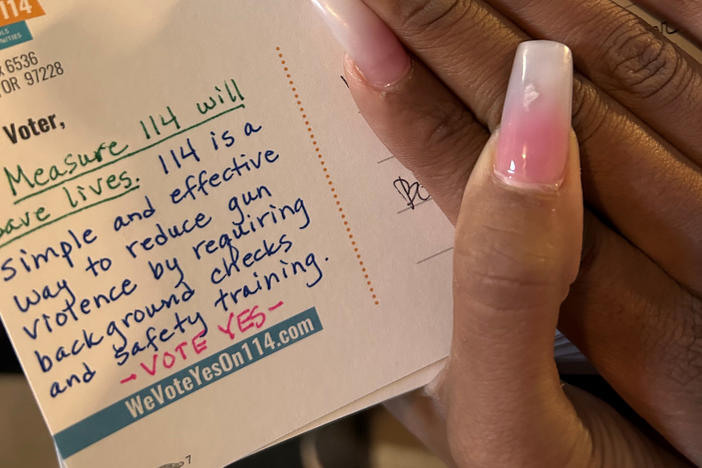 114
6536
OR 97228
Voter,
Measure 114 will
save lives. 114 is a
simple and effective
way to reduce gun
violence by requiring
background checks
and safety training.
-VOTE YES-
WeVoteYesOn114.com
7